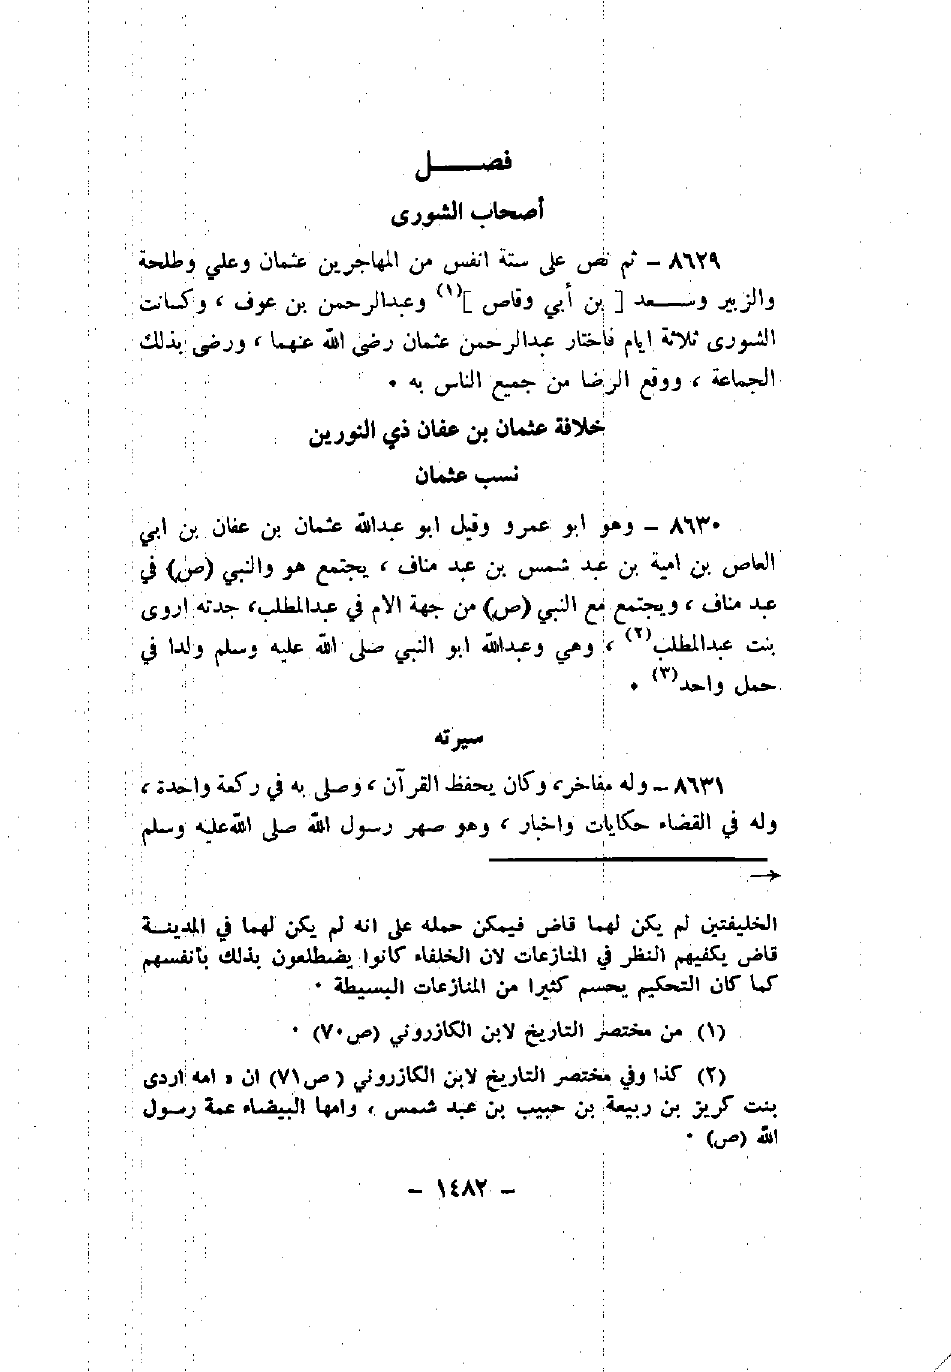 فصـــــل
أصحاب الشورى
٨٦٢٩ – ثم نص على ستة انفس من المهاجرين عثمان وعلي وطلحة
والزبير وســـعد [ بن أبي وقاص ](١) وعبدالرحمن بن عوف ، وكـانت
الشورى ثلاثة ايام فاختار عبدالرحمن عثمان رضى الله عنهما ، ورضى بذلك
الجماعة ، ووقع الرضا من جميع الناس به ٠
خلافة عثمان بن عفان ذي النورين
نسب عثمان
٨٦٣٠ – وهو ابو عمرو وقيل ابو عبدالله عثمان بن عفان بن ابي
العاص بن امية بن عبد شمس بن عبد مناف ، يجتمع هو والنبي (ص) في
عبد مناف ، ويجتمع مع النبي (ص) من جهة الام في عبدالمطلب، جدته اروى
بنت عبدالمطلب(٢) ، وهي وعبدالله ابو النبي صلى الله عليه وسلم ولدا في
حمل واحد(٣) ٠
سيرته
٨٦٣١ – وله مفاخر، وكان يحفظ القرآن ، وصلى به في ركعة واحدة ،
وله في القضاء حكايات واخبار ، وهو صهر رسول الله صلى الله عليه وسلم
→
الخليفتين لم يكن لهما قاض فيمكن حمله على انه لم يكن لهما في المدينـة
قاض يكفيهم النظر في المنازعات لان الخلفاء كانوا يضطلعون بذلك بأنفسهم
كما كان التحكيم يحسم كثيرا من المنازعات البسيطة ٠
(١) من مختصر التاريخ لابن الكازروني (ص٧٠) ٠
(٢) كذا وفي مختصر التاريخ لابن الكازروني ( ص٧١) ان « امه اردى
بنت كريز بن ربيعة بن حبيب بن عبد شمس ، وامها البيضاء عمة رسول
الله (ص) ٠
– ١٤٨٢ –